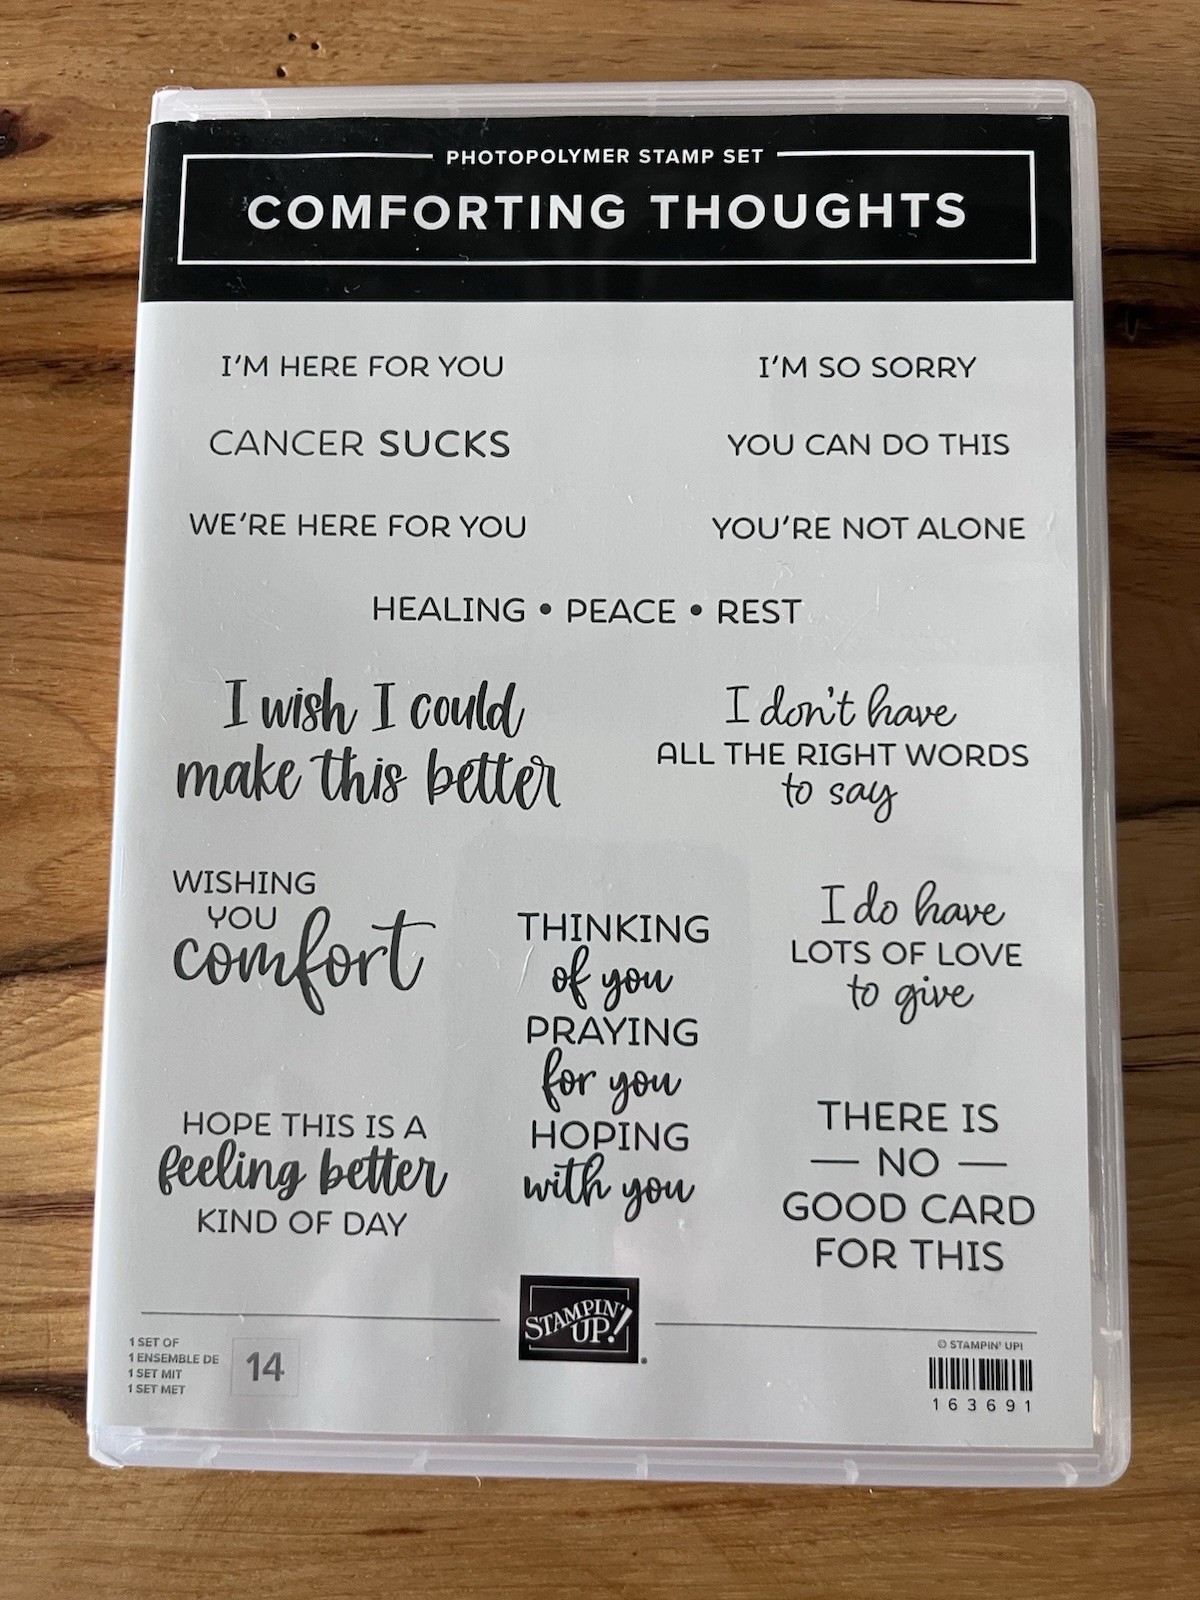 PHOTOPOLYMER STAMP SET
COMFORTING THOUGHTS
I'M HERE FOR YOU
I'M SO SORRY
CANCER SUCKS
YOU CAN DO THIS
WE'RE HERE FOR YOU
YOU'RE NOT ALONE
HEALING • PEACE • REST
I wish I could
make this better
I don't have
ALL THE RIGHT WORDS
to say
WISHING
YOU
comfort
THINKING
of you
PRAYING
for you
HOPING
with you
I do have
LOTS OF LOVE
to give
HOPE THIS IS A
feeling better
KIND OF DAY
THERE IS
— NO —
GOOD CARD
FOR THIS
STAMPIN'
UP!
1 SET OF
1 ENSEMBLE DE
1 SET MIT
1 SET MET
14
© STAMPIN' UP!
163691